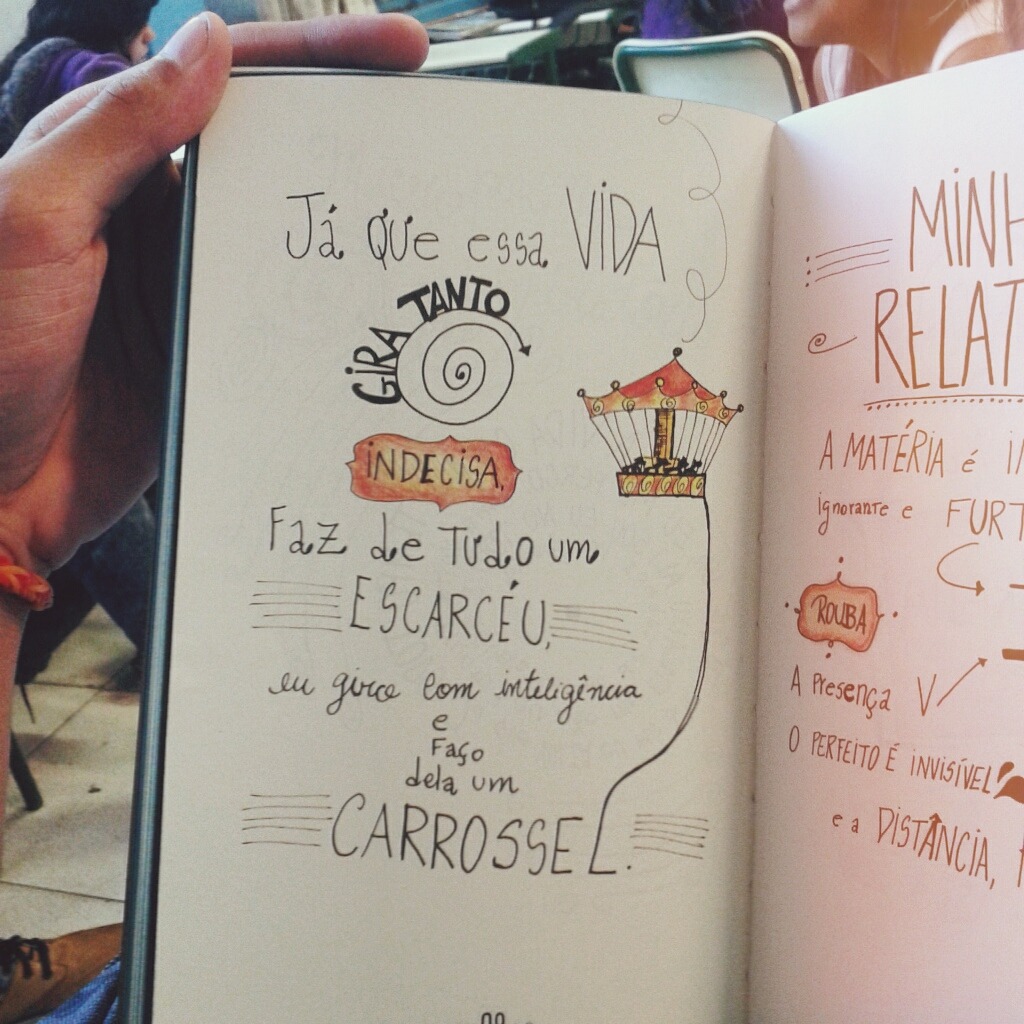 Já QUe essa VIDA
GIRA TANTO
INDECISA,
Faz de TUDO um
ESCARCÉU,
eu giro com inteligência
e
Faço
dela um
CARROSSEL.
MINH
RELAT
A MATÉRIA é
ignorante e FURT
ROUBA
A Presença V
O PERFEITO É INVISÍVEL
e a DISTÂNCIA,